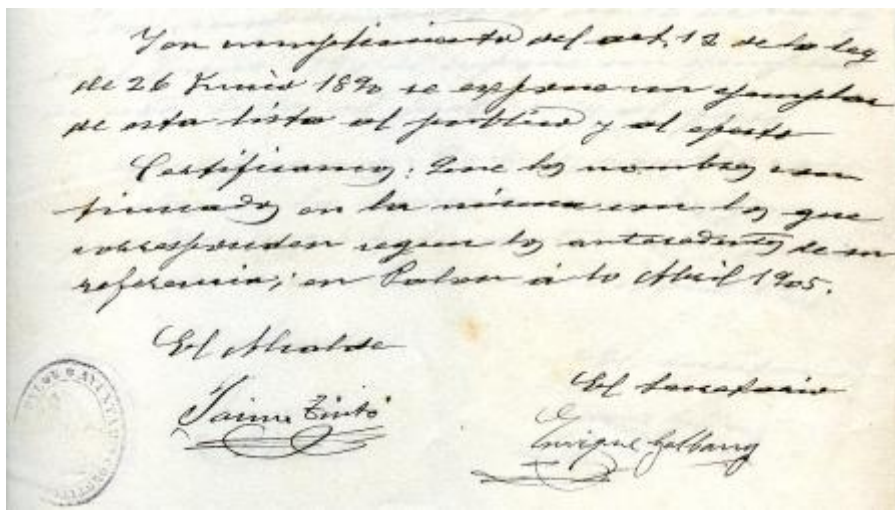 Y en cumplimiento del art. 12 de la ley
de 26 Junio 1890 se expone un ejemplar
de esta lista al publico y al efecto
Certificamos: Que los nombres con
tinuados en la misma son los que
corresponden segun los antecedentes de su
referencia; en Palou á 10 Abril 1905.
El Alcalde
Jaime Tintó
El Secretario
Enrique